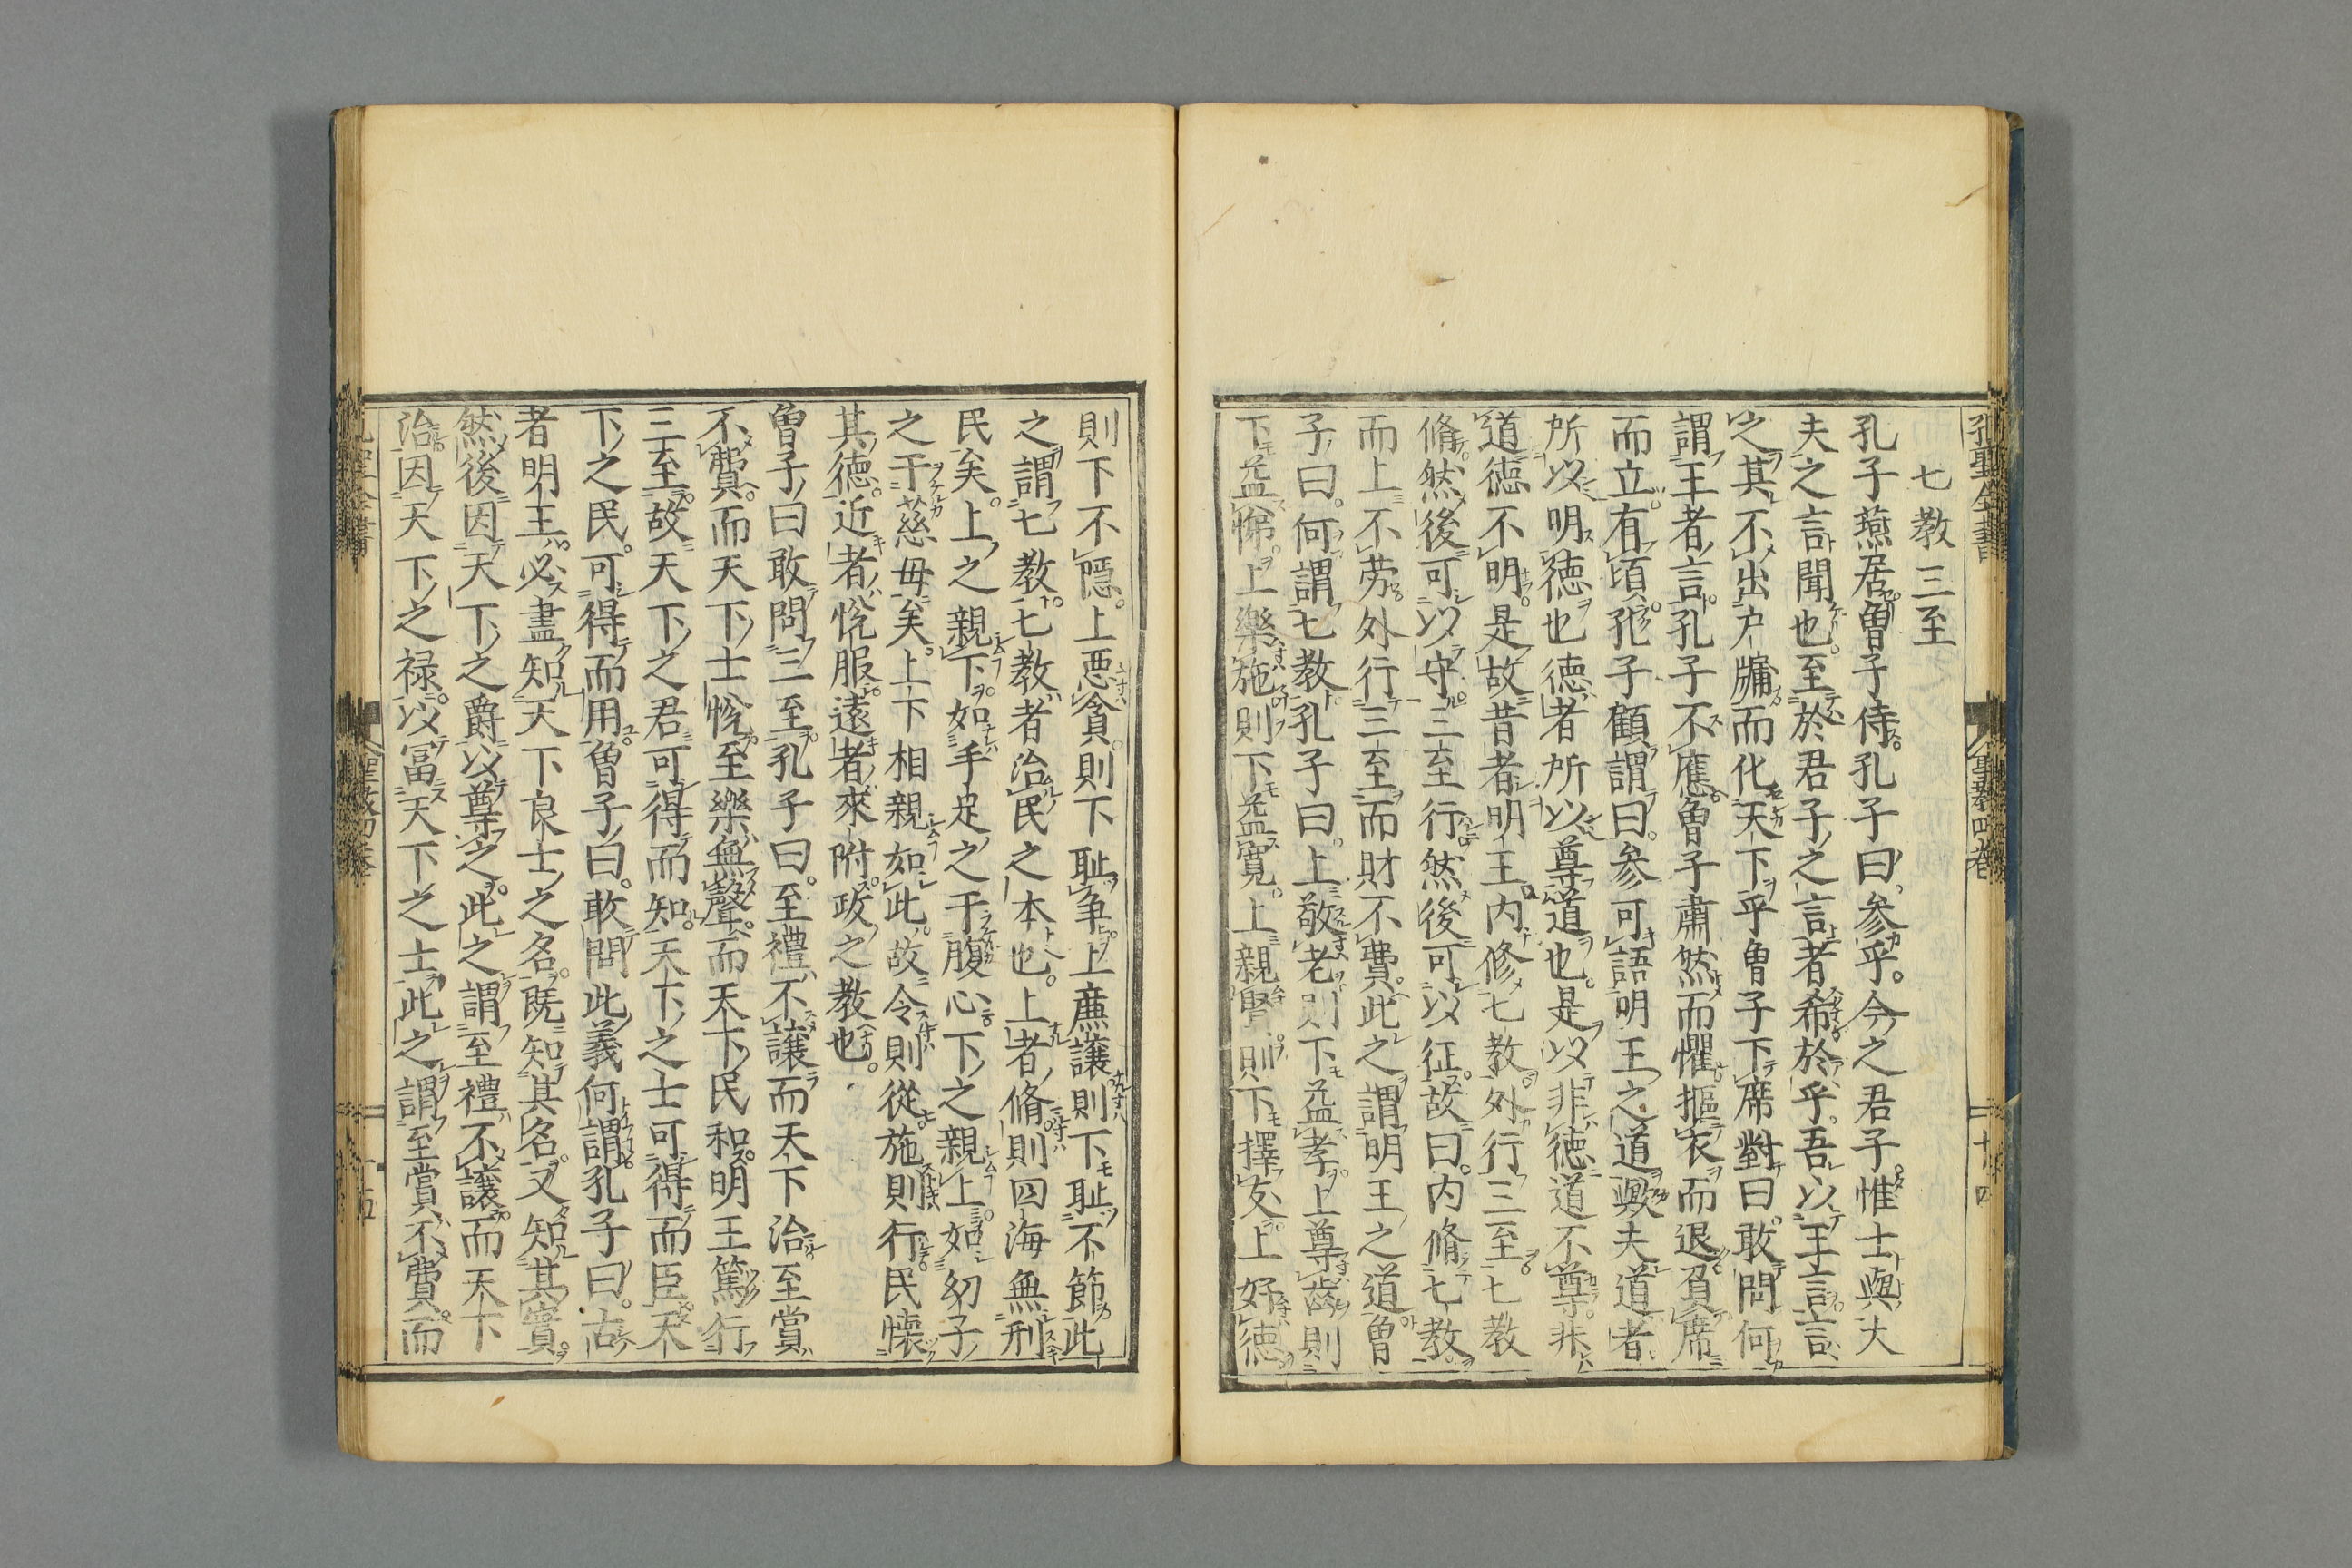 七教三至
孔子燕居曽子侍孔子曰参乎今之君子惟士與大
夫之言聞也至於君子之言者希於乎吾以王言言
之其不出户牖而化天下乎曽子下席對曰敢問何
謂王者言孔子不應曽子肅然而懼摳衣而退負席
而立有頃孔子顧謂曰参可語明王之道歟夫道者
所以明徳也徳者所以尊道也是以非徳道不尊非
道徳不明是故昔者明王内修七教外行三至七教
脩然後可以守三至行然後可以征故曰内脩七教
而上不劳外行三至而財不費此之謂明王之道曽
子曰何謂七教孔子曰上敬老則下益孝上尊齒則
下益悌上樂施則下益寛上親賢則下擇友上好徳
則下不隠上惡貪則下耻争上廉讓則下耻不節此
之謂七教七教者治民之本也上者脩則四海無刑
民矣上之親下如手足之于腹心下之親上如幼子
之于慈母矣上下相親如此故令則從施則行民懐
其徳近者悅服遠者來附政之教也
曽子曰敢問三至孔子曰至禮不讓而天下治至賞
不費而天下士悅至樂無聲而天下民和明王篤行
三至故天下之君可得而知天下之士可得而臣天
下之民可得而用曽子曰敢問此義何謂孔子曰古
者明王必盡知天下良士之名既知其名又知其實
然後因天下之爵以尊之此之謂至禮不讓而天下
治因天下之禄以冨天下之士此之謂至賞不費而
孔聖全書
聖教四巻
十四